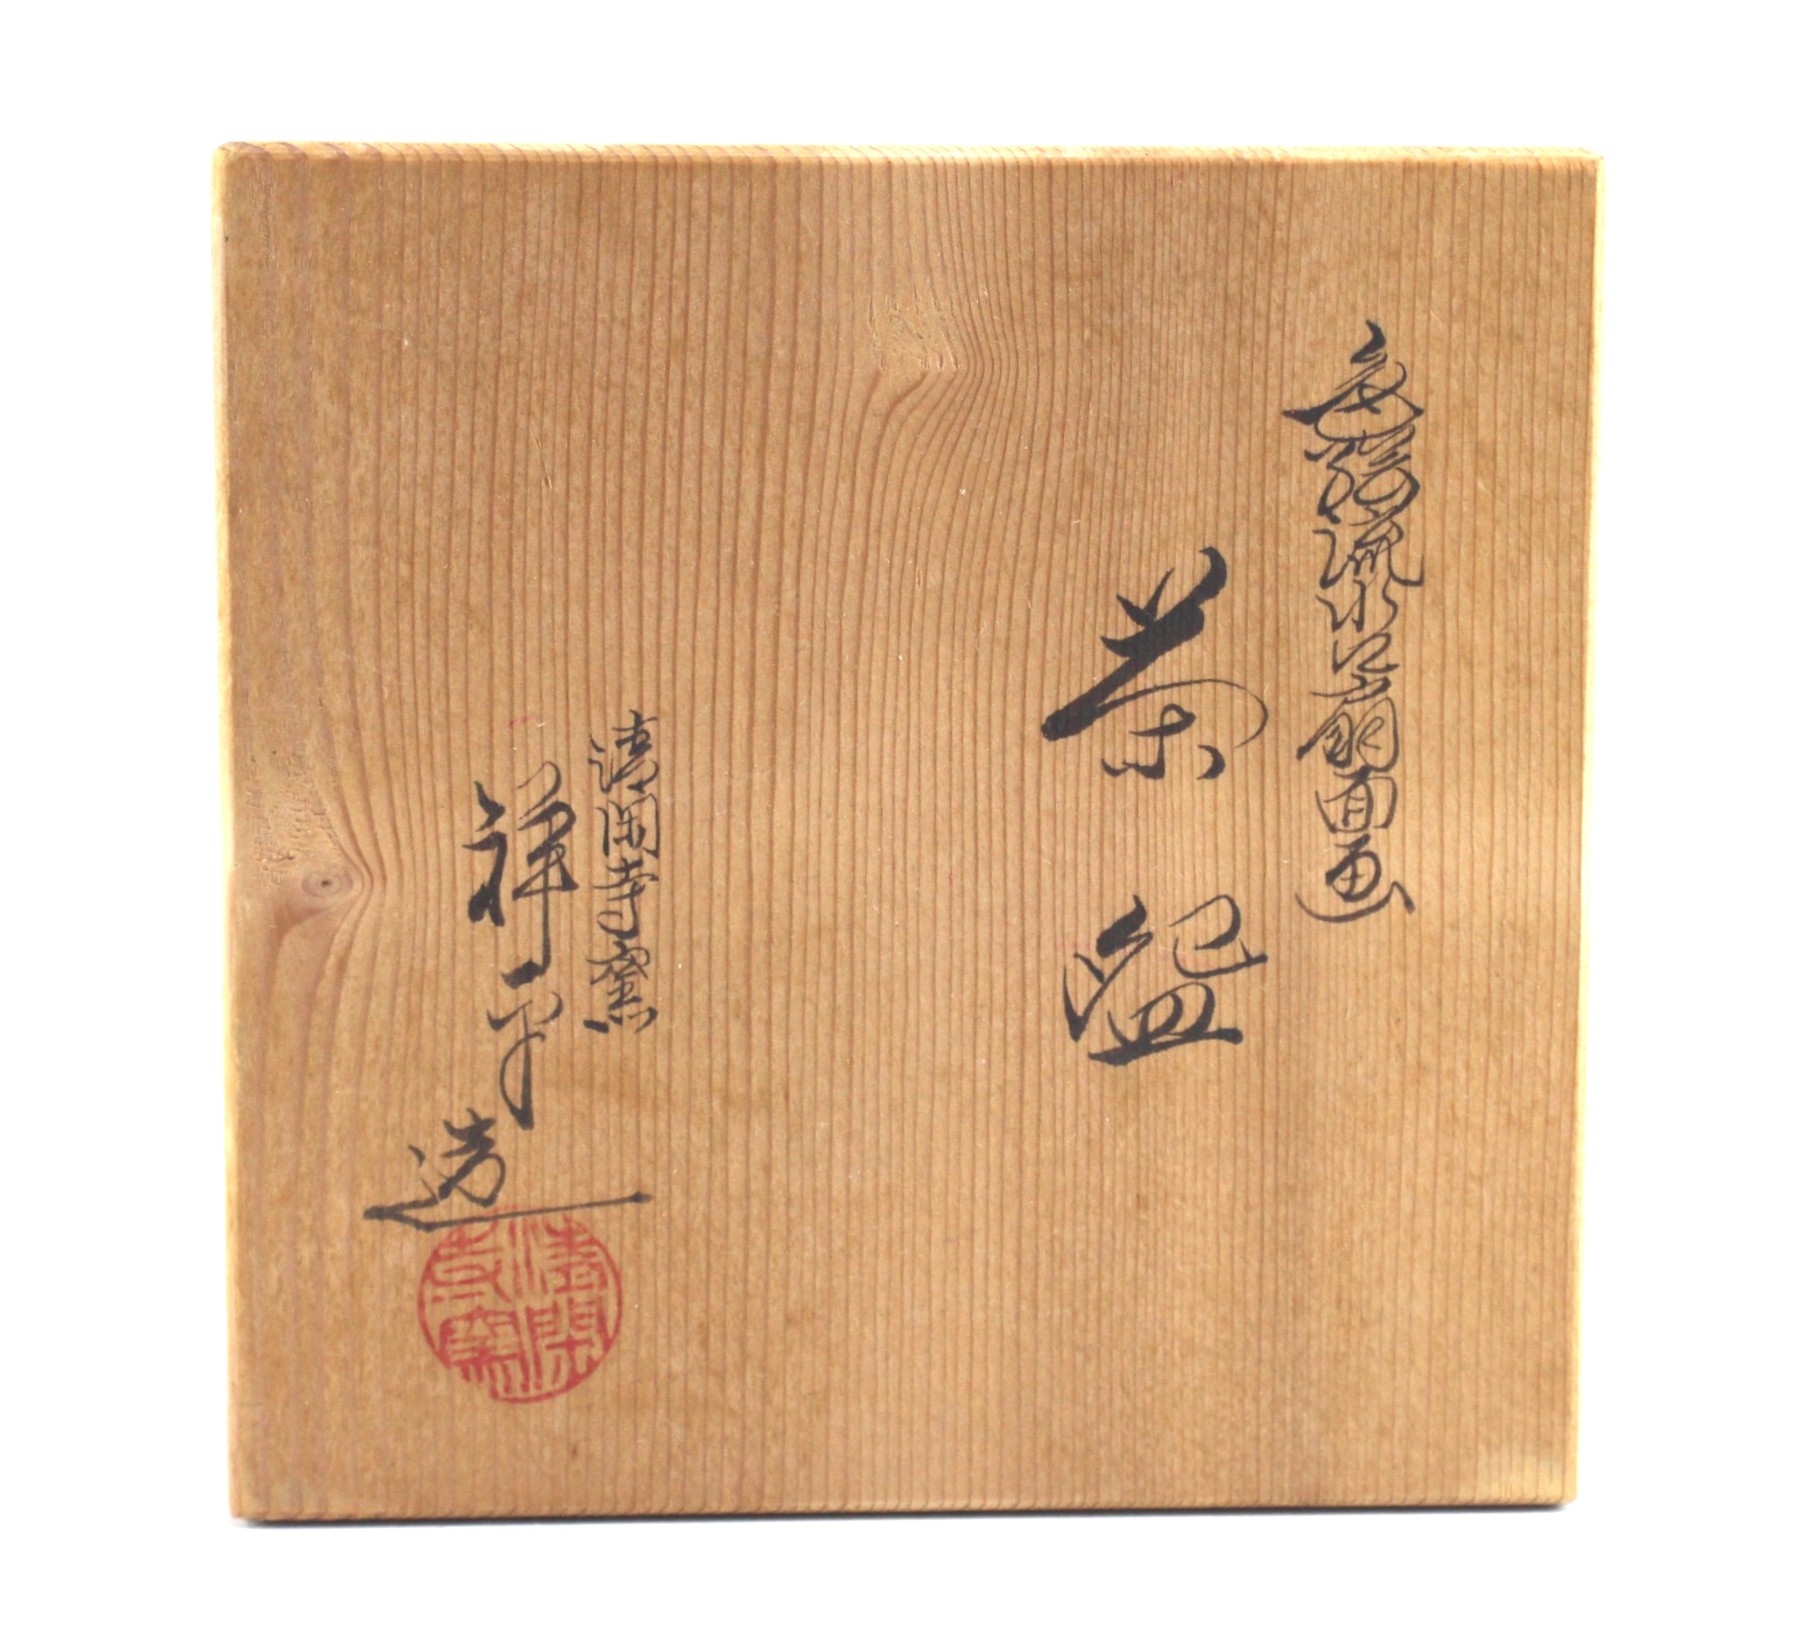 色絵流水に扇面画
茶盌
清閑寺窯
祥平造
清閑寺窯